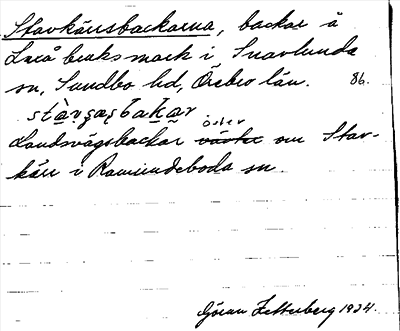 Stavkärrsbackarna, backar å
Laxå bruksmark i Snavlunda
sn, Sundbo hd, Örebro län. 86.
stàvşaşbakar
Landsvägsbackar väster öster om Stav-
kärr i Ramundeboda sn.
Göran Zetterberg 1934.